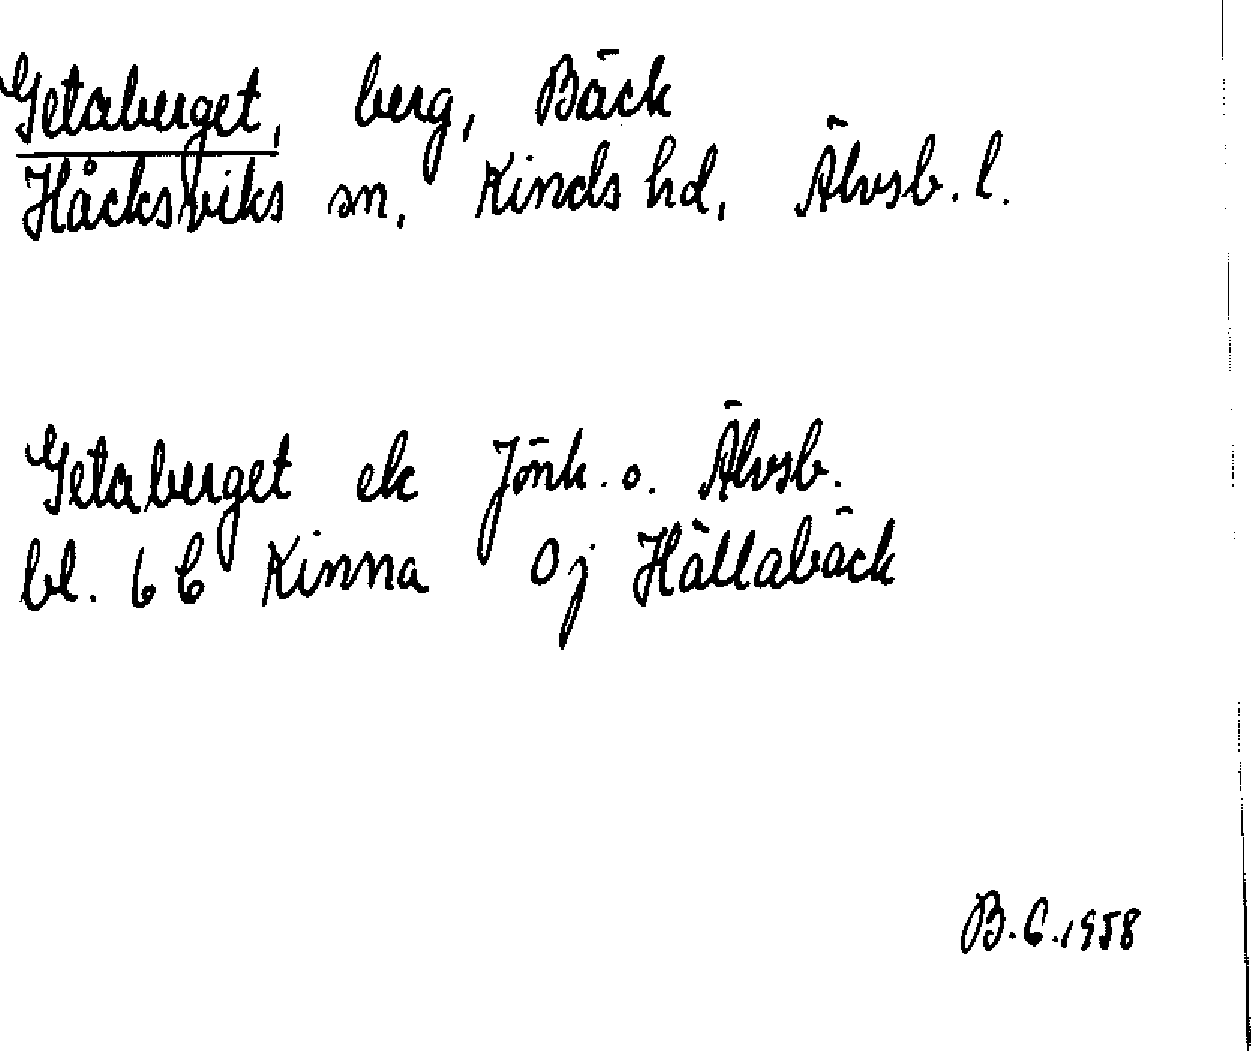 Getaberget, berg, Bäck
Håcksviks sn, Kinds hd, Älvsb. l.
Getaberget ek Jönk. o. Älvsb.
bl. 6 C Kinna Oj Hällabäck
B.C.1958